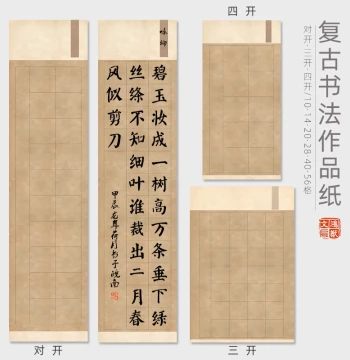 四 开
复古书法作品纸
对开·三开·四开/10·14·20·28·40·56格
咏柳
碧玉妆成一树高万条垂下绿
丝绦不知细叶谁裁出二月春
风似剪刀
甲辰龙年荷月书于皖南
对 开
三 开